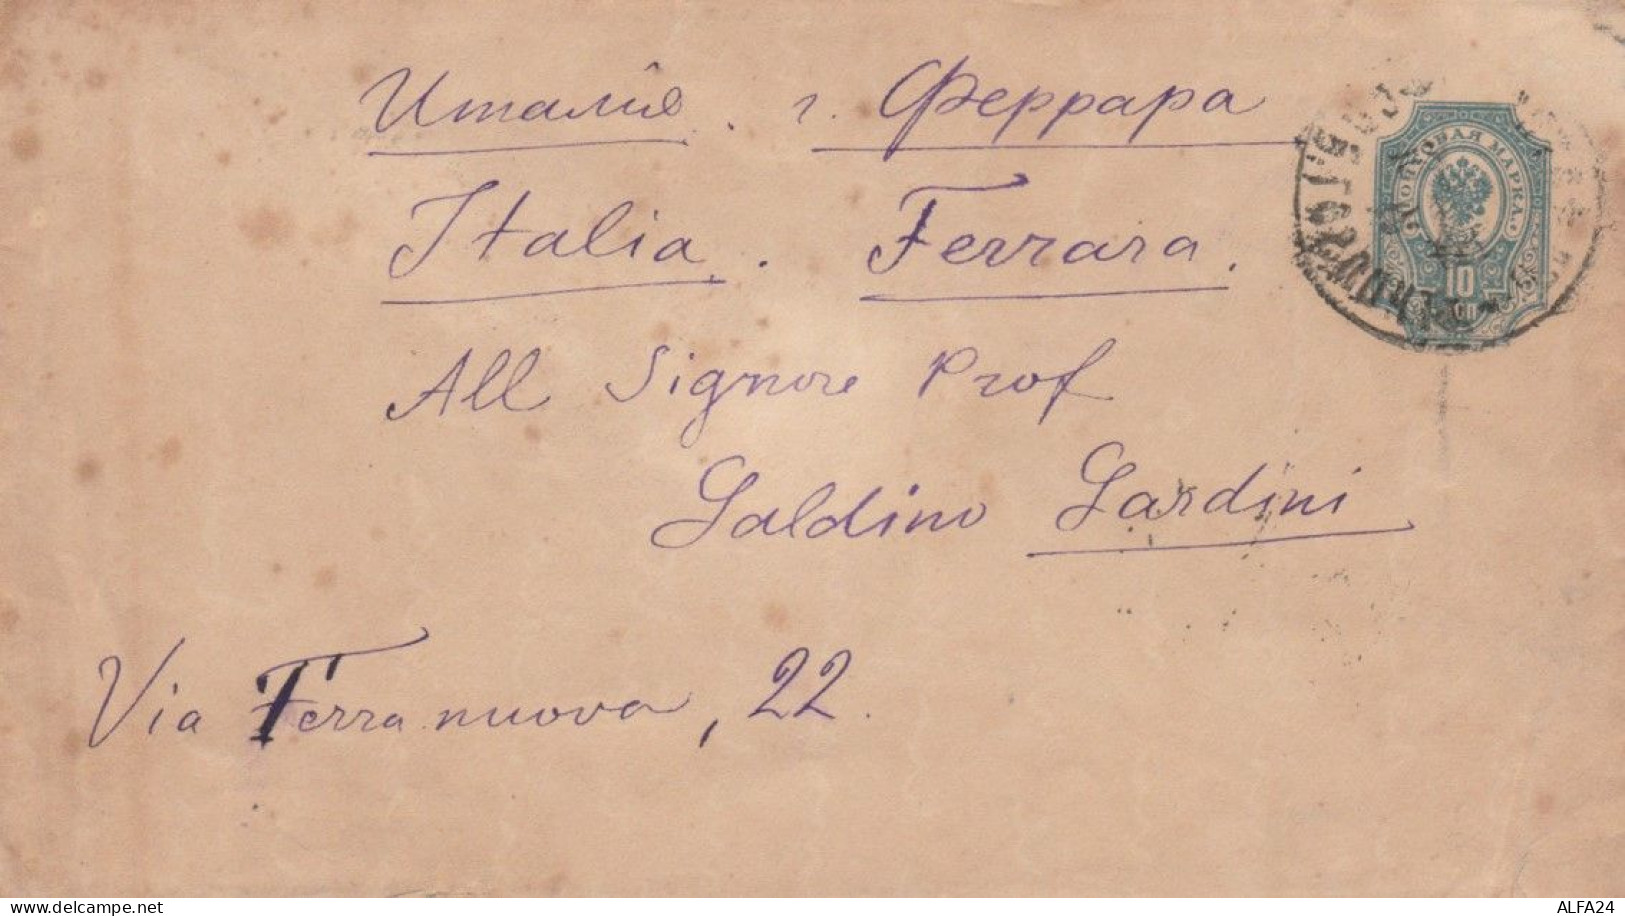 Италiя. г. Феррара
Italia. Ferrara.
All Signore Prof
Galdino Gardini
Via Terranuova, 22.
ПОЧТОВАЯ МАРКА
10
ALFA24